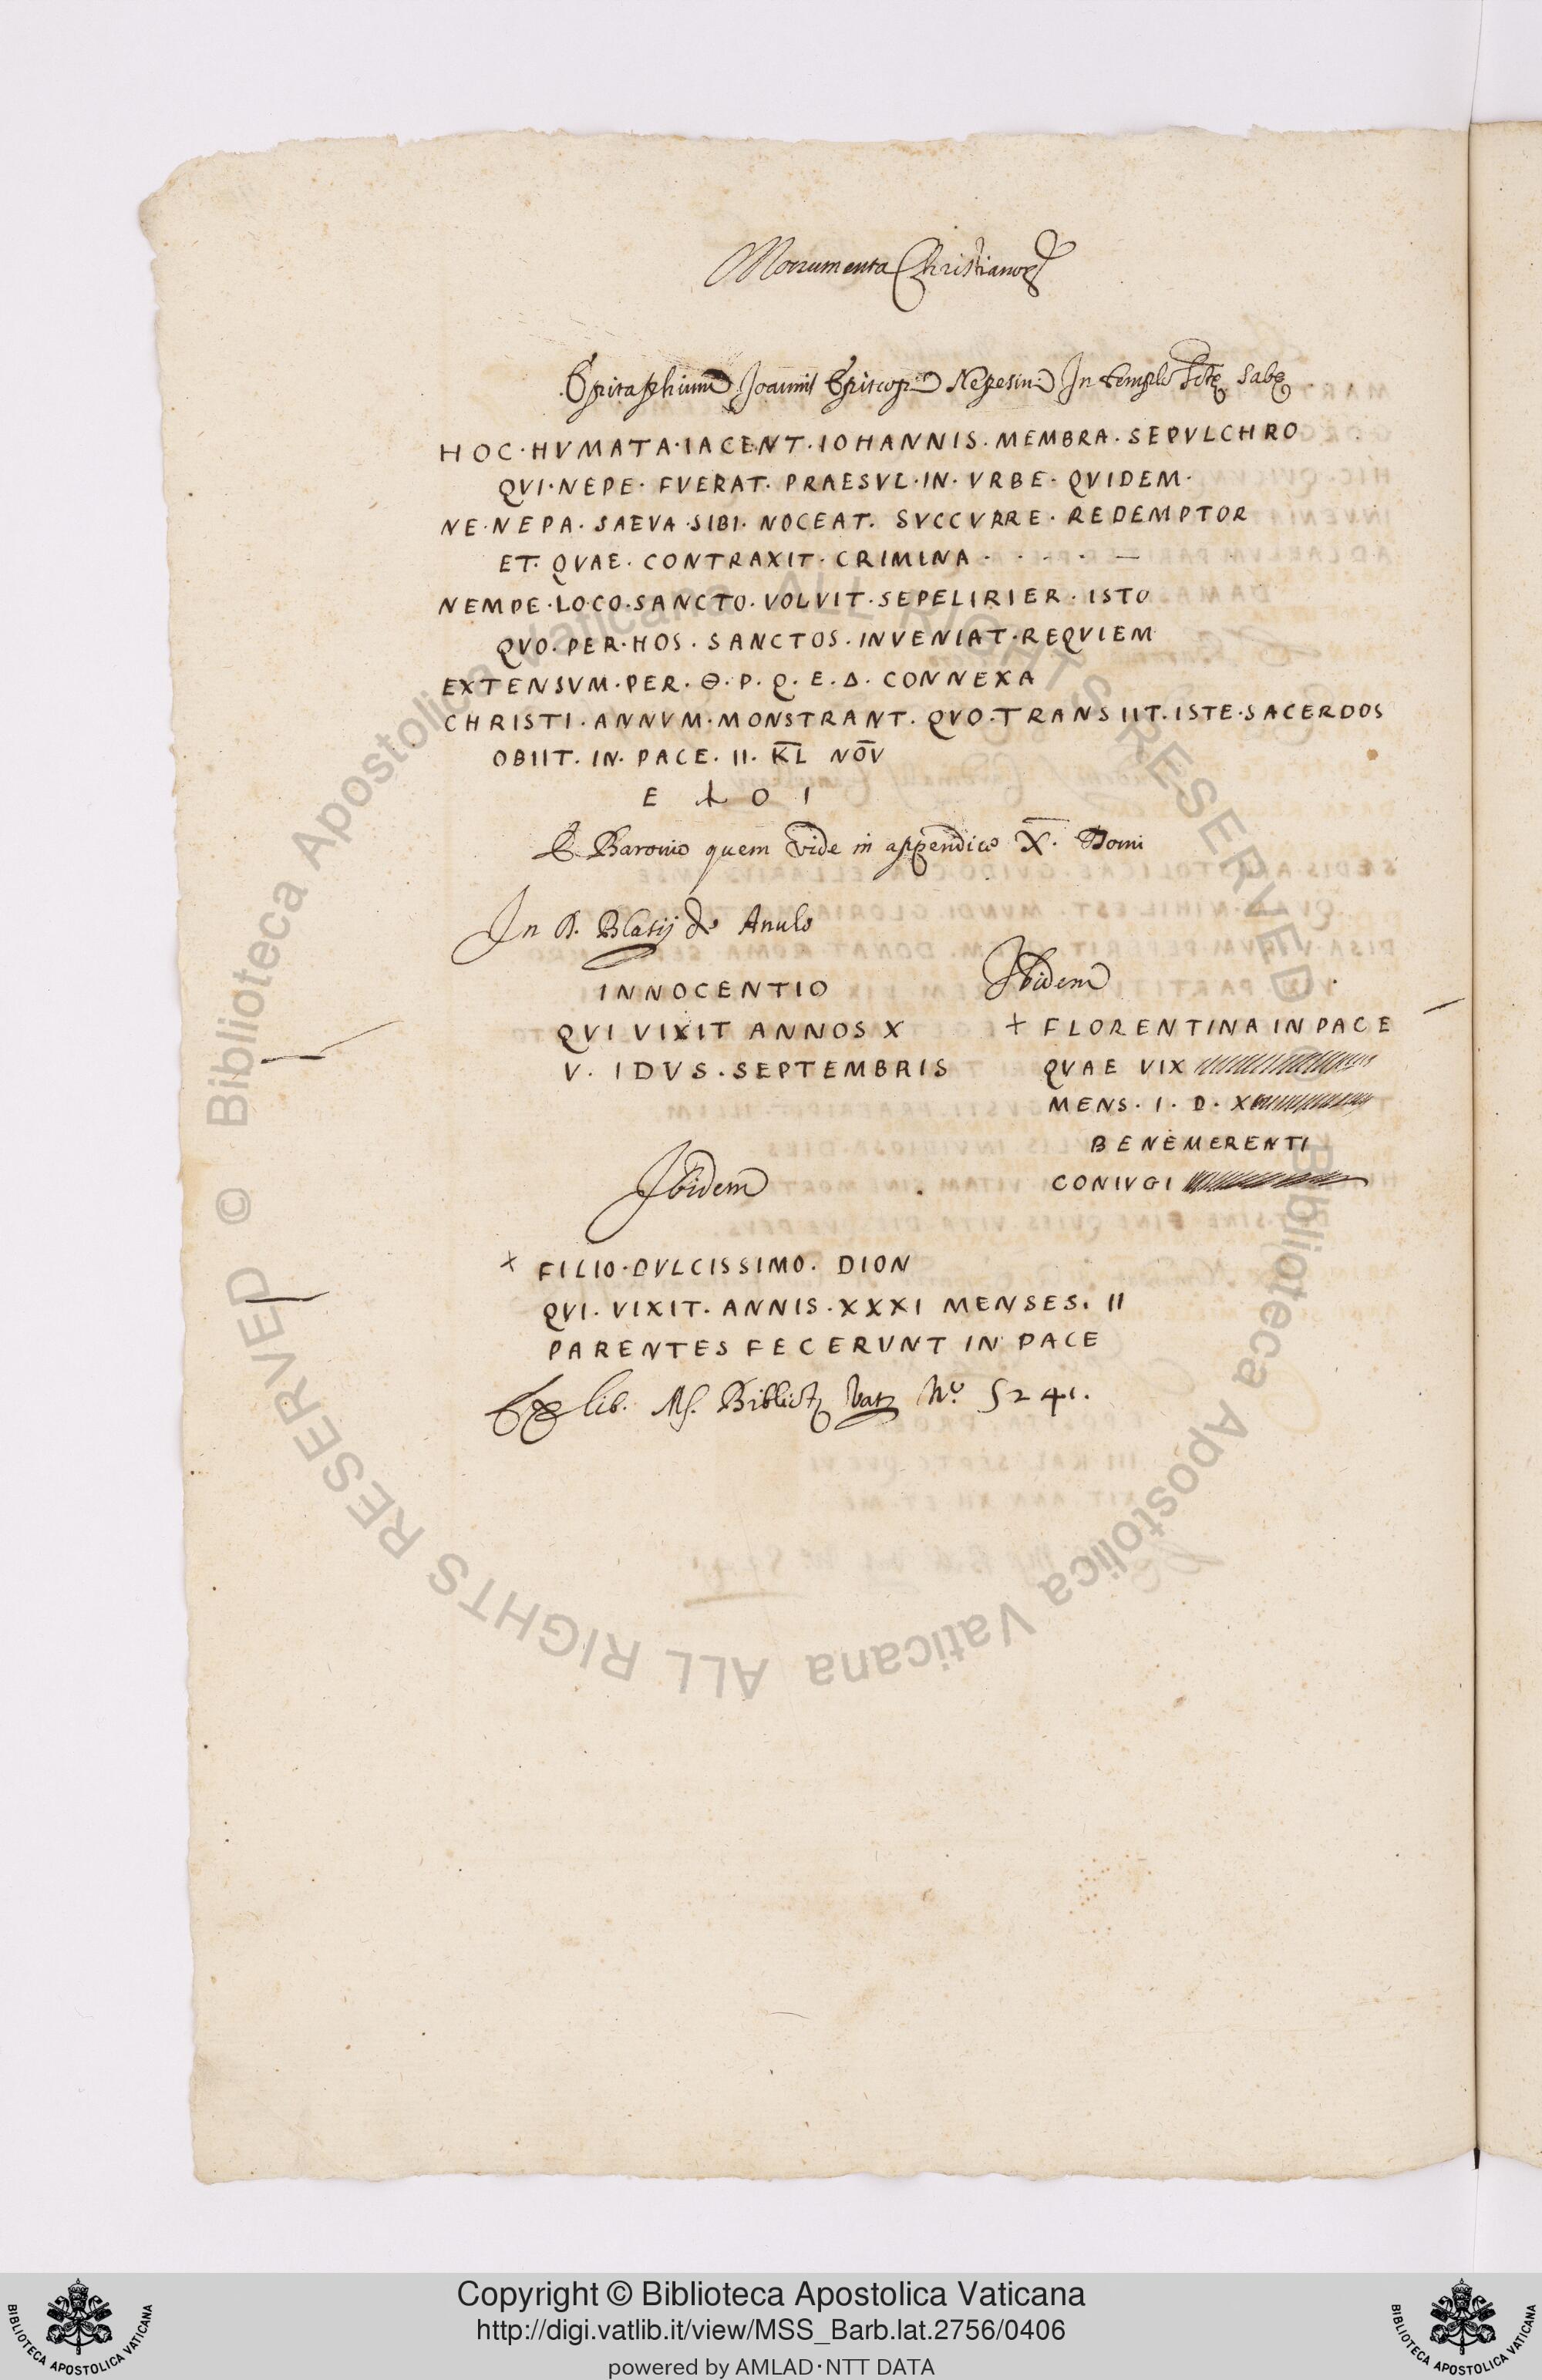 Monumenta Christianoꝝ
Epitaphium Joannis Episcopi Nepesini In templo Sctę Sabę
HOC·HVMATA·IACENT·IOHANNIS·MEMBRA·SEPVLCHRO
QVI·NEPE·FVERAT·PRAESVL·IN·VRBE·QVIDEM·
NE·NEPA·SAEVA·SIBI·NOCEAT·SVCCVRRE·REDEMPTOR
ET·QVAE·CONTRAXIT·CRIMINA· · · · · —
NEMPE·LOCO·SANCTO·VOLVIT·SEPELIRIER·ISTO
QVO·PER·HOS·SANCTOS·INVENIAT·REQVIEM
EXTENSVM·PER·Θ·P·Q·E·Δ·CONNEXA
CHRISTI·ANNVM·MONSTRANT·QVO·TRANSIIT·ISTE·SACERDOS
OBIIT·IN·PACE·II·KL NOV
E O I
E Baronio quem vide in appendice X. Tomi
In S. Blasij de Anulo
INNOCENTIO
QVI VIXIT ANNOS X
V. IDVS. SEPTEMBRIS
Ibidem
+ FLORENTINA IN PACE
QVAE VIX
MENS. I. D. X
BENEMERENTI
CONIVGI
Ibidem
+ FILIO·DVLCISSIMO. DION
QVI. VIXIT. ANNIS. XXXI MENSES. II
PARENTES FECERVNT IN PACE
Ex lib. Ms. Bibliot Vat No. 5241.
Copyright © Biblioteca Apostolica Vaticana
http://digi.vatlib.it/view/MSS_Barb.lat.2756/0406
powered by AMLAD·NTT DATA
BIBLIOTECA APOSTOLICA VATICANA
BIBLIOTECA APOSTOLICA VATICANA
© Biblioteca Apostolica Vaticana ALL RIGHTS RESERVED
© Biblioteca Apostolica Vaticana ALL RIGHTS RESERVED